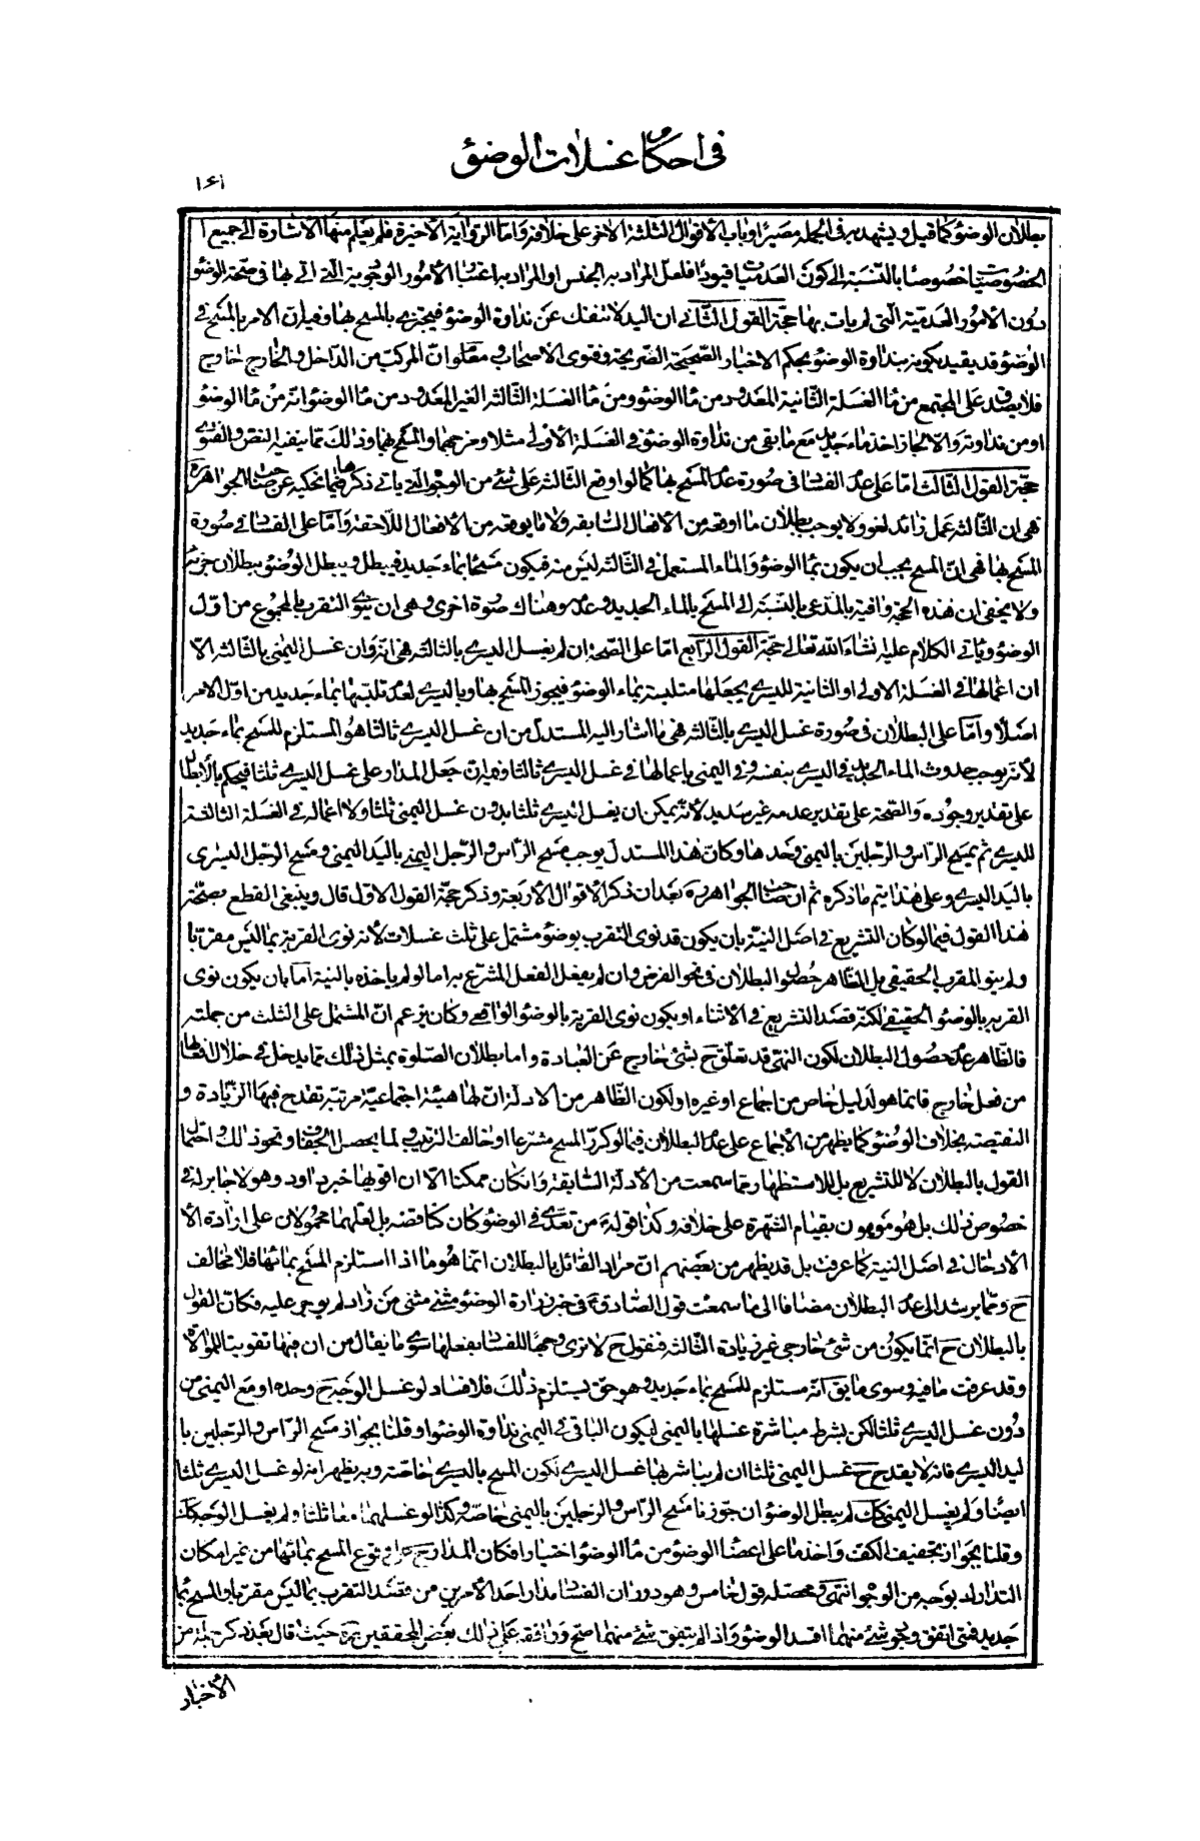 في احكام غسلات الوضوء
١٦١
بطلان الوضوء كما قيل ويشهد به في الجملة مصير ارباب الأقوال الثلثة الاخر على خلافه وامّا الرّواية الأخيرة فلم يعلم منها الاشارة الى جميع
الخصوصيّات خصوصا بالنّسبة الى كون العدميّات قيودا فلعلّ المراد به الجنس او المراد به اعتبار الأمور الوجودية الّتي اتى بها في صحّة الوضوء
دون الامور العدميّة الّتي لم يات بها حجّة القول الثّاني ان اليد لا تنفك عن نداوة الوضوء فيجتزي بالمسح بها وفيه انّ الامر بالمسح في
الوضوء قد يقيد بكونه بنداوة الوضوء بحكم الاخبار الصّحيحة الصّريحة وفتوى الأصحاب ومعلوم انّ المركّب من الدّاخل والخارج خارج
فلا يصدق على المجتمع من ماء الغسلة الثّانية المعدود من ماء الوضوء ومن ماء الغسلة الثّالثة الغير المعدود من ماء الوضوء انّه من ماء الوضوء
او من نداوته والا لجاز اخذ ماء جديد مع ما بقي من نداوة الوضوء في الغسلة الأولى مثلا ومزجهما والمسح بهما وذلك ممّا ينفيه النصّ والفتوى
حجّة القول الثّالث امّا على عدم الفساد في صورة عدم المسح بها كما لو اوقع الثّالثة على شئ من الوجوه الّتي ياتي ذكرها فيما نحكيه عن صاحب الجواهر ره
فهي ان الثّالثة عمل زائد لغو ولا يوجب بطلان ما اوقعه من الأفعال السّابقة ولا ما يوقعه من الأفعال اللّاحقة وامّا على الفساد في صورة
المسح بها فهي انّ المسح يجب ان يكون بماء الوضوء والماء المستعمل في الثّالثة ليس منه فيكون مسحا بماء جديد فيبطل ويبطل الوضوء ببطلان جزئه
ولا يخفى ان هذه الحجّة وافية بالمدّعى بالنّسبة الى المسح بالماء الجديد وعدمه وهناك صورة اخرى وهي ان ينوي التقرب بالمجموع من اوّل
الوضوء وياتي الكلام عليه انشاء الله تعالى حجّة القول الرّابع امّا على الصّحة ان لم يغسل اليسرى بالثالثة فهي انّه وان غسل اليمنى بالثالثة الّا
ان اعمالها في الغسلة الاولى او الثانية لليسرى يجعلها متلبسة بماء الوضوء فيجوز المسح بها وباليسرى لعدم تلبّسها بماء جديد من اوّل الامر
اصلا وامّا على البطلان في صورة غسل اليسرى بالثّالثة فهي ما اشار اليه المستدلّ من ان غسل اليسرى ثالثا هو المستلزم للمسح بماء جديد
لأنّه يوجب حدوث الماء الجديد في اليسرى بنفسه وفي اليمنى باعمالها في غسل اليسرى ثالثا وفيه ان جعل المدار على غسل اليسرى ثلثا فيحكم بالابطال
على تقدير وجوده والصّحة على تقدير عدمه غير سديد لأنّه يمكن ان يغسل اليسرى ثلثا بدون غسل اليمنى ثلثا ولا اعماله في الغسلة الثالثة
لليسرى ثم يمسح الرّاس والرّجلين باليمنى وحدها وكان هذا المستدلّ يوجب مسح الرّاس والرّجل اليمنى باليد اليمنى ومسح الرّجل اليسرى
باليد اليسرى وعلى هذا يتم ما ذكره ثم ان صاحب الجواهر ره بعد ان ذكر الاقوال الأربعة وذكر حجّة القول الاوّل قال وينبغي القطع بصحّة
هذا القول فيما لو كان التشريع في اصل النيّة بان يكون قد نوى التقرب بوضوء مشتمل على ثلث غسلات لأنّه نوى القربة بما ليس مقربا
ولم ينو المقرب الحقيقي بل الظّاهر حصول البطلان في نحو الفرض وان لم يفعل الفعل المشرّع به اما لو لم ياخذه بالنية اما بان يكون نوى
القربة بالوضوء الحقيقي لكنّه قصد التشريع في الأثناء او يكون نوى القربة بالوضوء الواقعي وكان يزعم انّ المشتمل على الثلث من جملته
فالظّاهر عدم حصول البطلان لكون النهي قد تعلّق ح بشئ خارج عن العبادة واما بطلان الصّلوة بمثل ذلك ممّا يدخل في خلال افعالها
من فعل خارج فانما هو لدليل خاص من اجماع او غيره او لكون الظّاهر من الادلة ان لها هيئة اجتماعيّة مرتبة تقدح فيها الزّيادة و
النقيصة بخلاف الوضوء كما يظهر من الأجماع على عدم البطلان فيما لو كرّر المسح مشرّعا او خالف الترتيب ولما يحصل الجفاف ونحو ذلك واحتمال
القول بالبطلان لا للتشريع بل للاستظهار ممّا سمعت من الأدلّة السّابقة وان كان ممكنا الّا ان اقويها خبر داود وهو لا جابر له في
خصوص ذلك بل هو موهون بقيام الشهرة على خلافه وكذا قوله من تعدّى في الوضوء كان كناقضه بل لعلّهما محمولان على ارادة الأ
الأدخال في اصل النية كما عرفت بل قد يظهر من بعضهم انّ مراد القائل بالبطلان انّما هو ما اذا استلزم المسح بمائها فلا مخالف
ح وممّا يرشد الى عدم البطلان مضافا الى ما سمعت قول الصّادق ع في خبر زرارة الوضوء مثنى مثنى من زاد لم يوجر عليه فكان القول
بالبطلان ح انّما يكون من شئ خارجي غير زيادة الثّالثة فنقول ح لا نرى وجها للفساد بفعلها سوى ما يقال من ان فيها تفويتا للموالاة
وقد عرفت ما فيه وسوى ما يق انّه مستلزم للمسح بماء جديد وهو حق يستلزم ذلك فلا فساد لو غسل الوجه ح وحده او مع اليمنى من
دون غسل اليسرى ثلثا لكن بشرط مباشرة غسلها باليمنى ليكون الباقي في اليمنى نداوة الوضوء او قلنا بجواز مسح الرّاس والرّجلين با
ليد اليسرى فانّه لا يقدح ح غسل اليمنى ثلثا ان لم يباشر بها غسل اليسرى لكون المسح باليسرى خاصّة وبه يظهر انه لو غسل اليسرى ثلثا
ايضا ولم يغسل اليمنى كك لم يبطل الوضوء ان جوّزنا مسح الرّاس والرّجلين باليمنى خاصّة وكذا لو غسلهما معا ثلثا ولم يغسل الوجه كك
وقلنا بجواز تجفيف الكفّ واخذ ماء على اعضاء الوضوء من ماء الوضوء اختيارا فكان المدار ح على وقوع المسح بمائها من غير امكان
التدارك بوجه من الوجوه انتهى ومحصّله قول خامس وهو دوران الفساد مدار احد الأمرين من قصد التقرب بما ليس مقربا والمسح بماء
جديد فمتى اتفق وجود شئ منهما افسد الوضوء واذا لم يتفق شئ منهما صحّ ووافقه على ذلك بعض المحققين ره حيث قال بعد ذكر جملة من
الأخبار